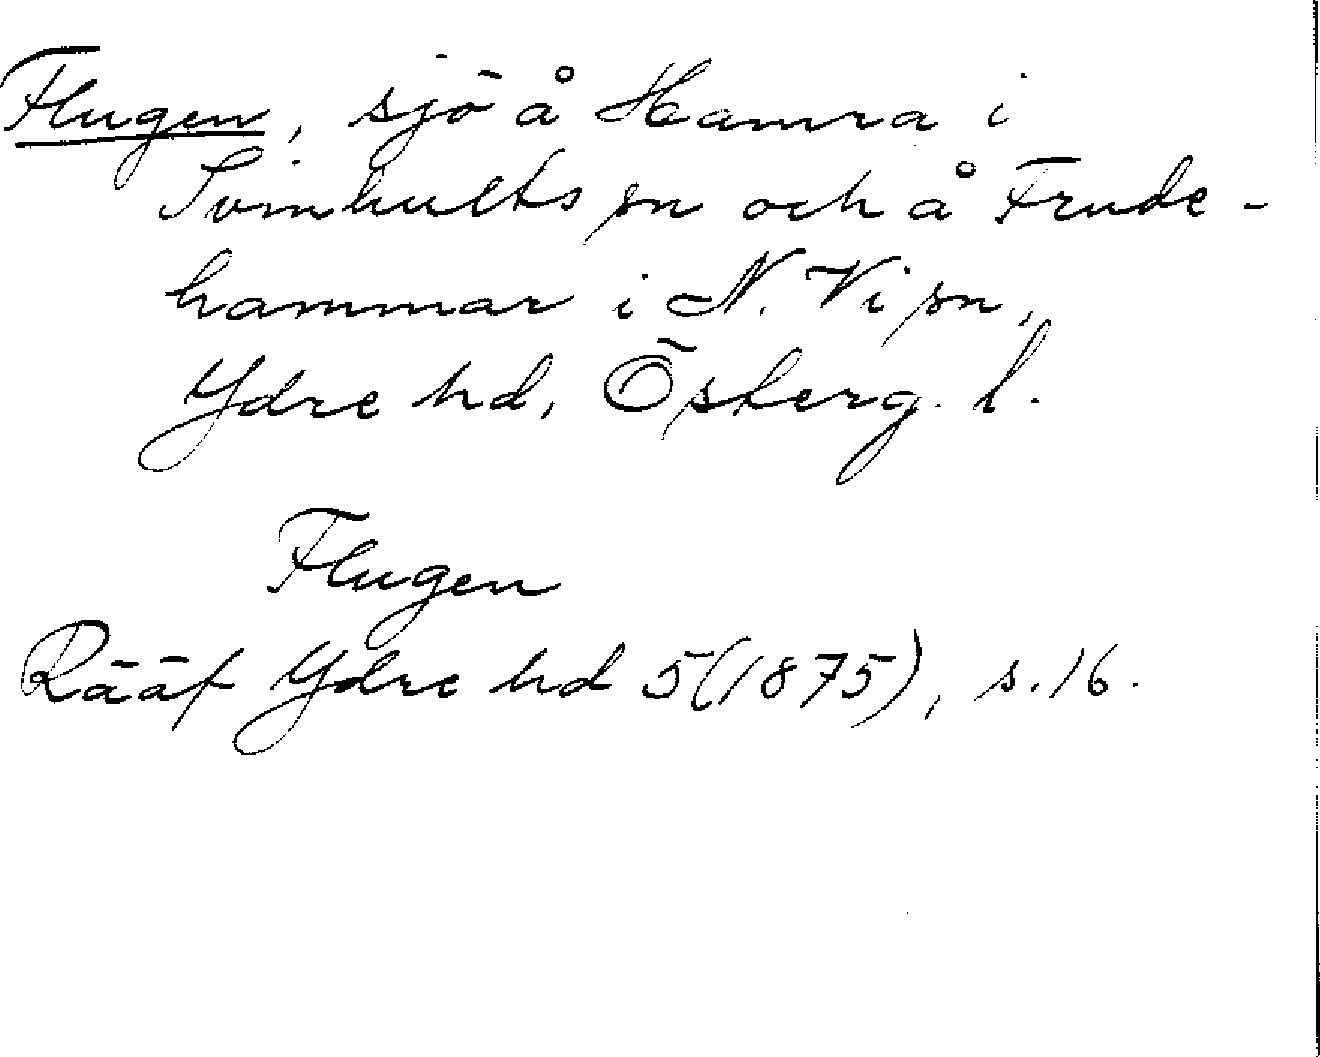 Flugen, sjö å Hamra i
Svinhults sn och å Frude-
hammar i N. Vi sn,
Ydre hd, Österg. l.
Flugen
Rääf Ydre hd 5 (1875), s. 16.